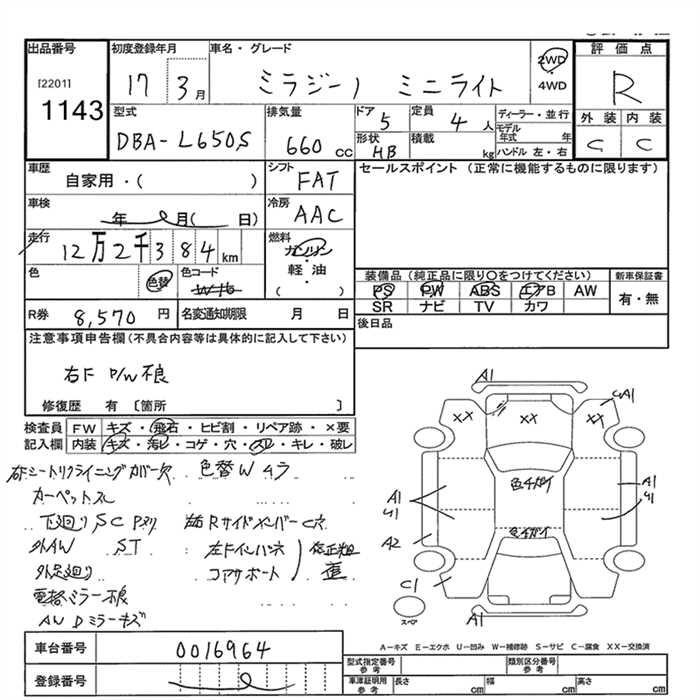 出品番号
[2201]
1143
初度登録年月
17 3月
車名・グレード
ミラジーノ ミニライト
2WD
・
4WD
評価点
R
外装 内装
C C
型式
DBA-L650S
排気量
660 cc
ドア 5
定員 4 人
形状 HB
積載 kg
ディーラー・並行
モデル年式 年
ハンドル 左・右
車歴
自家用・( )
シフト
FAT
セールスポイント (正常に機能するものに限ります)
車検
年 月( 日)
冷房
AAC
走行
12万2千384km
燃料
ガソリン
・
軽・油
( )
色
色替
色コード
装備品 (純正品に限り○をつけてください)
PS PW ABS エアB AW
SR ナビ TV カワ
新車保証書
有・無
R券 8,570 円
名変通知期限 月 日
後日品
注意事項申告欄 (不具合内容等は具体的に記入して下さい)
右F P/W不良
修復歴 有 〔箇所 〕
検査員記入欄
FW キズ・飛石・ヒビ割・リペア跡・×要
内装 キズ・汚レ・コゲ・穴・スレ・キレ・破レ
右Fシートリクライニングカバー欠 色替W ムラ
カーペットスレ
下廻りSC Pスリ
右Rサイドメンバー C穴
外AW ST
左Fインパネ
外足廻り
コアサポート
修正粗
歪
電格ミラー不良
AW Dミラーキズ
A1
A1
XX
XX
XX
色4ガイ
色4ガイ
A1
U1
A2
A1
U1
C1
A1
スペア
A－キズ E－エクボ U－凹み W－補修跡 S－サビ C－腐食 XX－交換済
車台番号 0016964
登録番号
型式指定番号
参考
類別区分番号
参考
車津証明用
参考
長さ cm
幅 cm
高さ cm